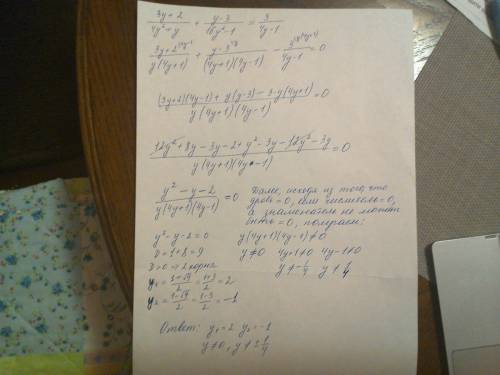 (3y+2)/(4y²+y) + (y-3)/(16y²-1) = 3/(4y-1)
(3y+2)/(y(4y+1)) + (y-3)/((4y+1)(4y-1)) - 3/(4y-1) = 0
((3y+2)(4y-1) + y(y-3) - 3·y(4y+1))/(y(4y+1)(4y-1)) = 0
(12y²+8y-3y-2+y²-3y-12y²-3y)/(y(4y+1)(4y-1)) = 0
(y²-y-2)/(y(4y+1)(4y-1)) = 0
Далее, исходя из того, что
дробь = 0, если числитель = 0,
а знаменатель не может
быть = 0, получаем:
y²-y-2=0 y(4y+1)(4y-1)≠0
D=1+8=9 y≠0 4y+1≠0 4y-1≠0
D>0 => 2 корня y≠-1/4 y≠1/4
y₁ = (1+√9)/2 = (1+3)/2 = 2
y₂ = (1-√9)/2 = (1-3)/2 = -1
Ответ: y₁=2 y₂=-1
y≠0, y≠±1/4